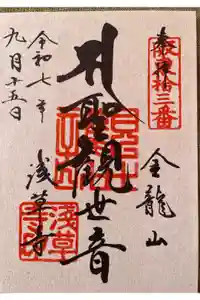 奉拝
坂東拾三番
金龍山
聖観世音
浅草寺
令和七年
九月十五日